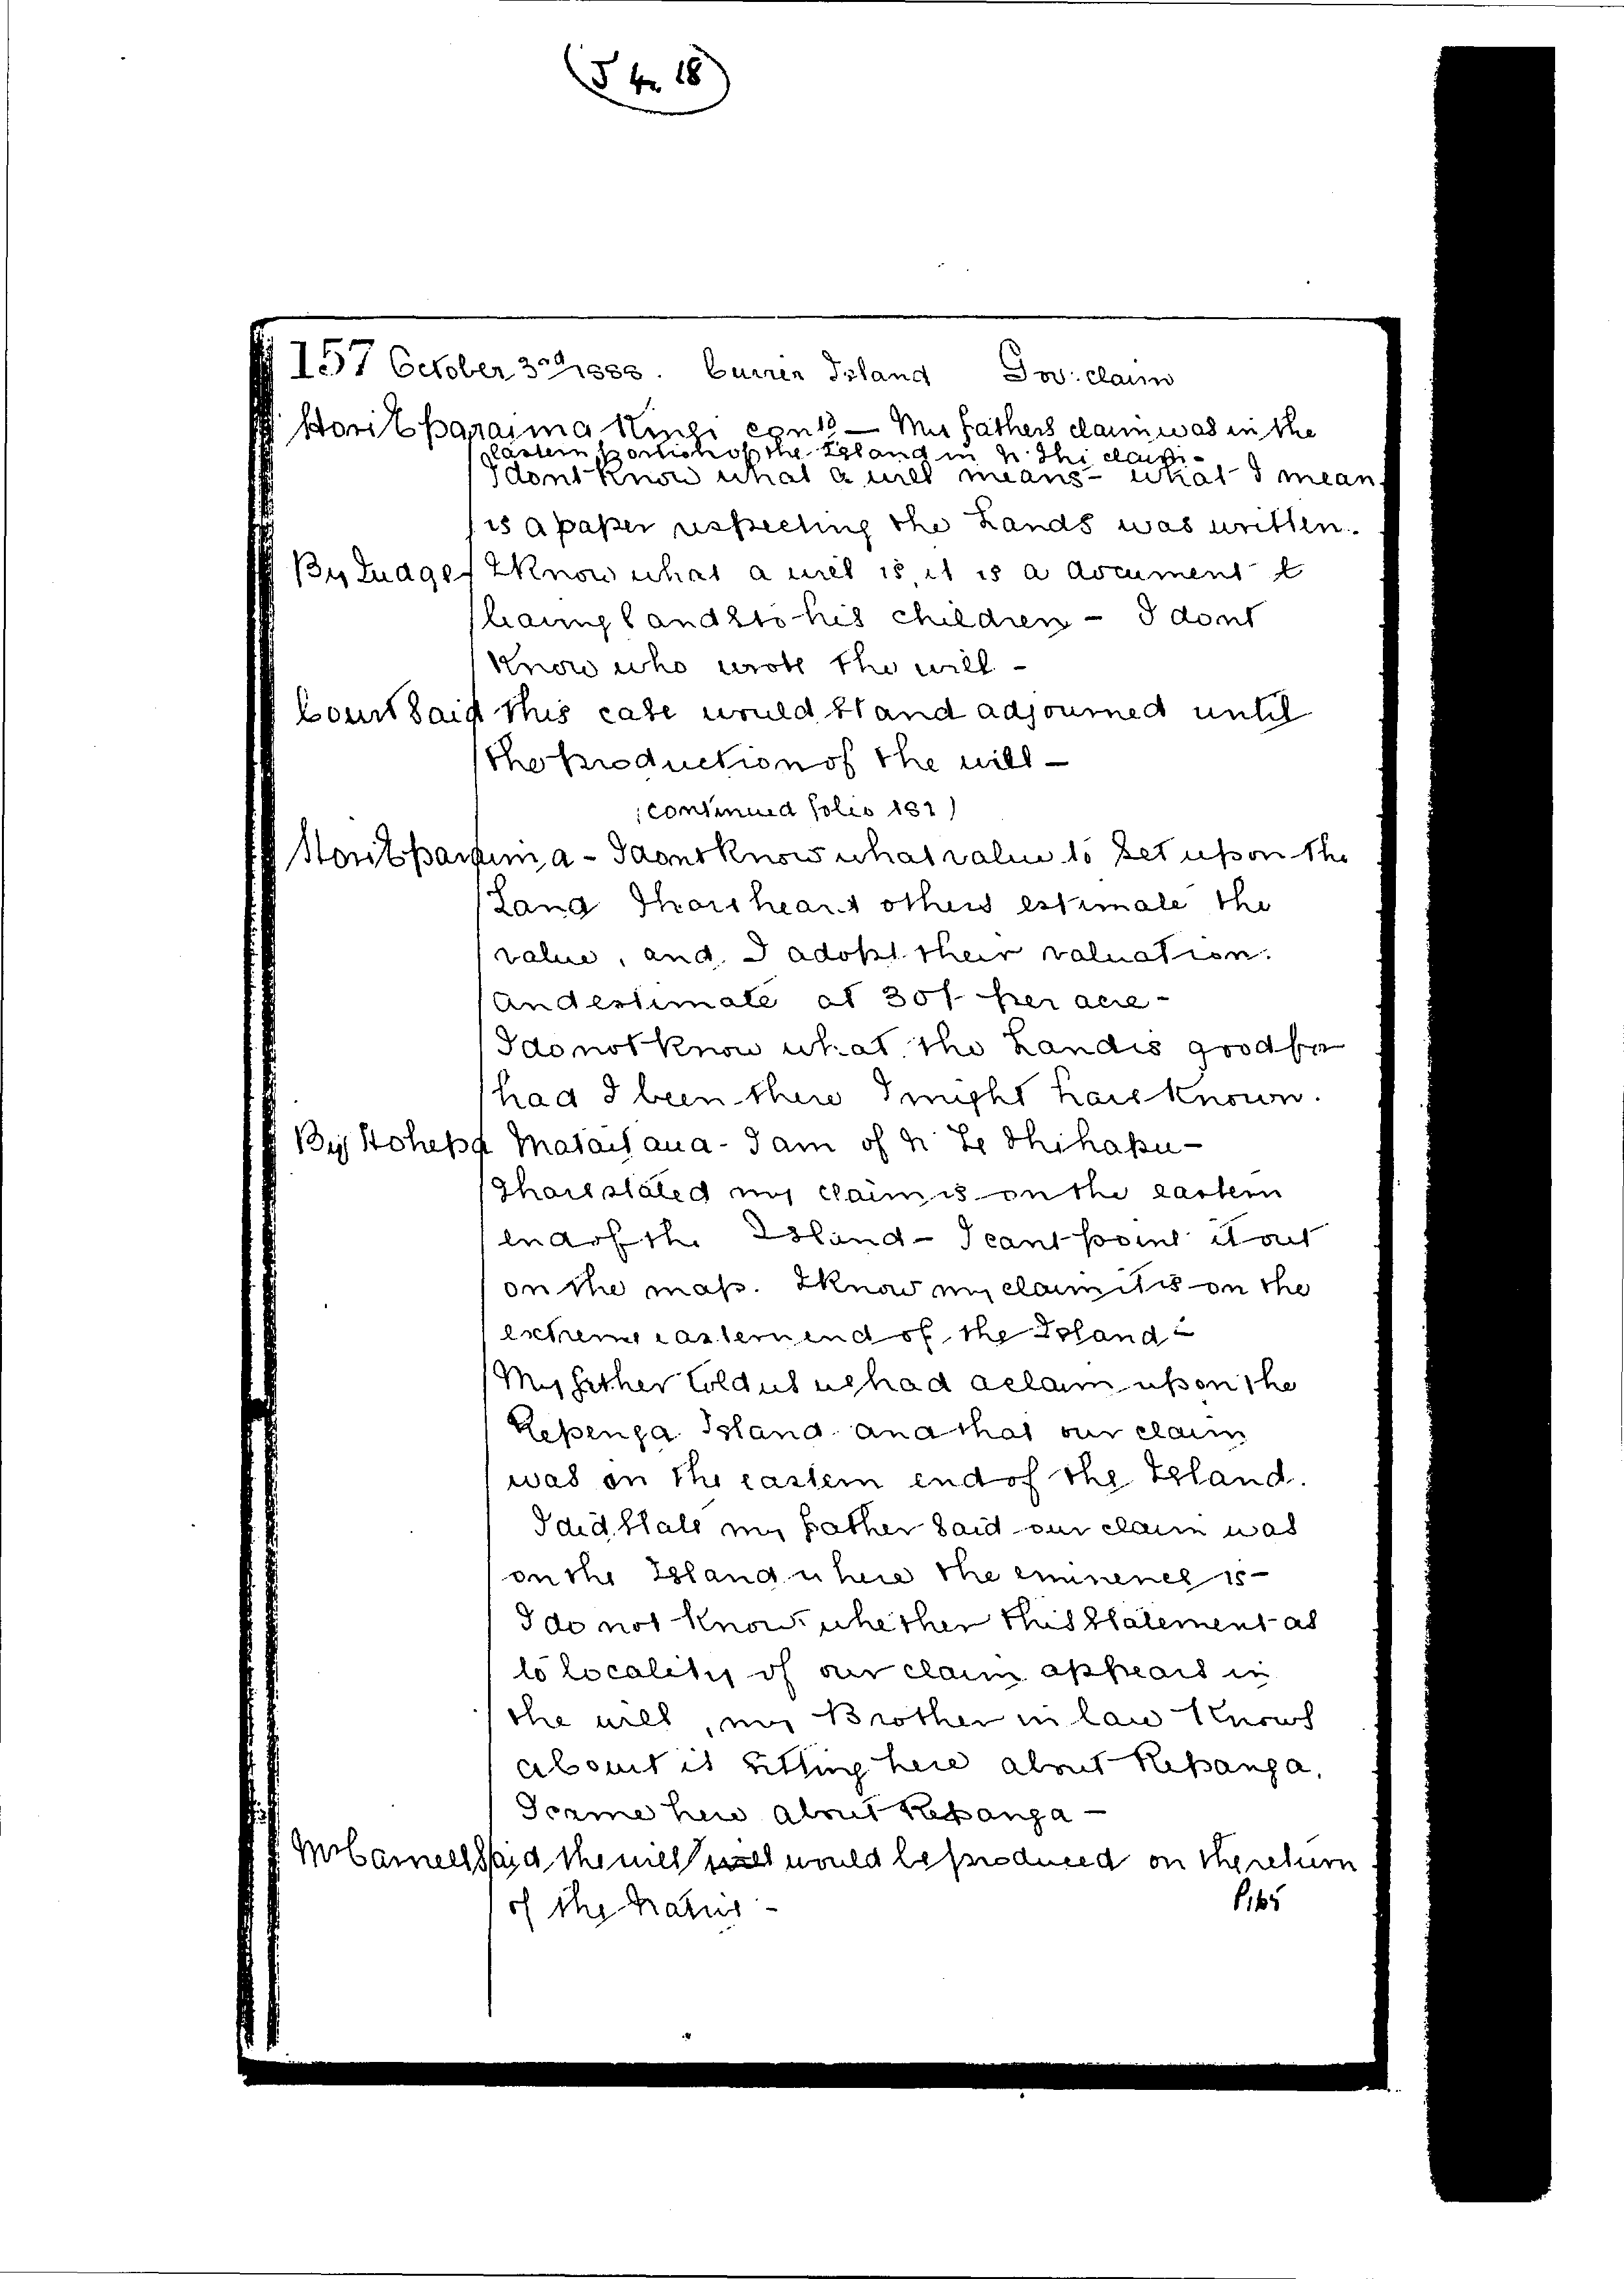 157 October 3rd 1888. Cuvier Island Gov: claim
Hori Paraima Kingi contd — My fathers claim was in the
eastern portion of the Island in claim -
I dont know what a will means - what I mean
is a paper respecting the Lands was written.
By Judge I know what a will is, it is a document
leaving lands to his children - I dont
know who wrote the will -
Court Said this case would Stand adjourned until
the production of the will -
(continued folio 181)
I dont know what value to set upon the
Land I have heard others estimate the
value, and I adopt their valuation.
and estimate at 30/- per acre -
I do not know what the Land is good for
had I been there I might have known.
By Hohepa Mataitaua - I am of N' Te Thihapu -
I have stated my claim is on the eastern
end of the Island - I cant point it out
on the map. I know my claim it is on the
extreme eastern end of the Island -
My father told us we had a claim upon the
Repenga Island and that our claim
was on the eastern end of the Island.
I did State my father said our claim was
on the Island where the eminence is -
I do not know whether this Statement as
to locality of our claim appears in
the will, my Brother in law Knows
about it sitting here about Repanga,
I came here about Repanga -
said the will would be produced on the return
of the
P.165